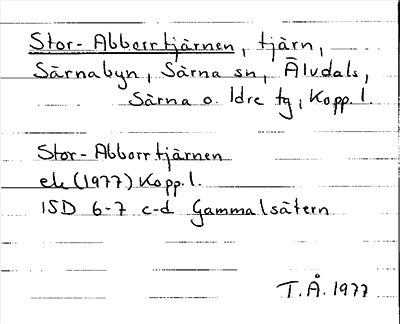 Stor-Abborrtjärnen, tjärn,
Särnabyn, Särna sn, Älvdals,
Särna o. Idre tg, Kopp. l.
Stor-Abborrtjärnen
ek (1977) Kopp. l.
15D 6-7 c-d Gammalsätern
T. Å. 1977